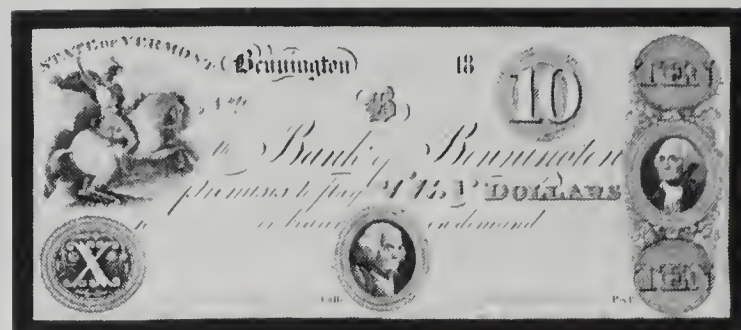 STATE OF VERMONT (Bennington) 18 10 TEN
(B)
the Bank of Bennington
promises to pay TEN DOLLARS
or bearer on demand
X TEN
Cash. Pres.